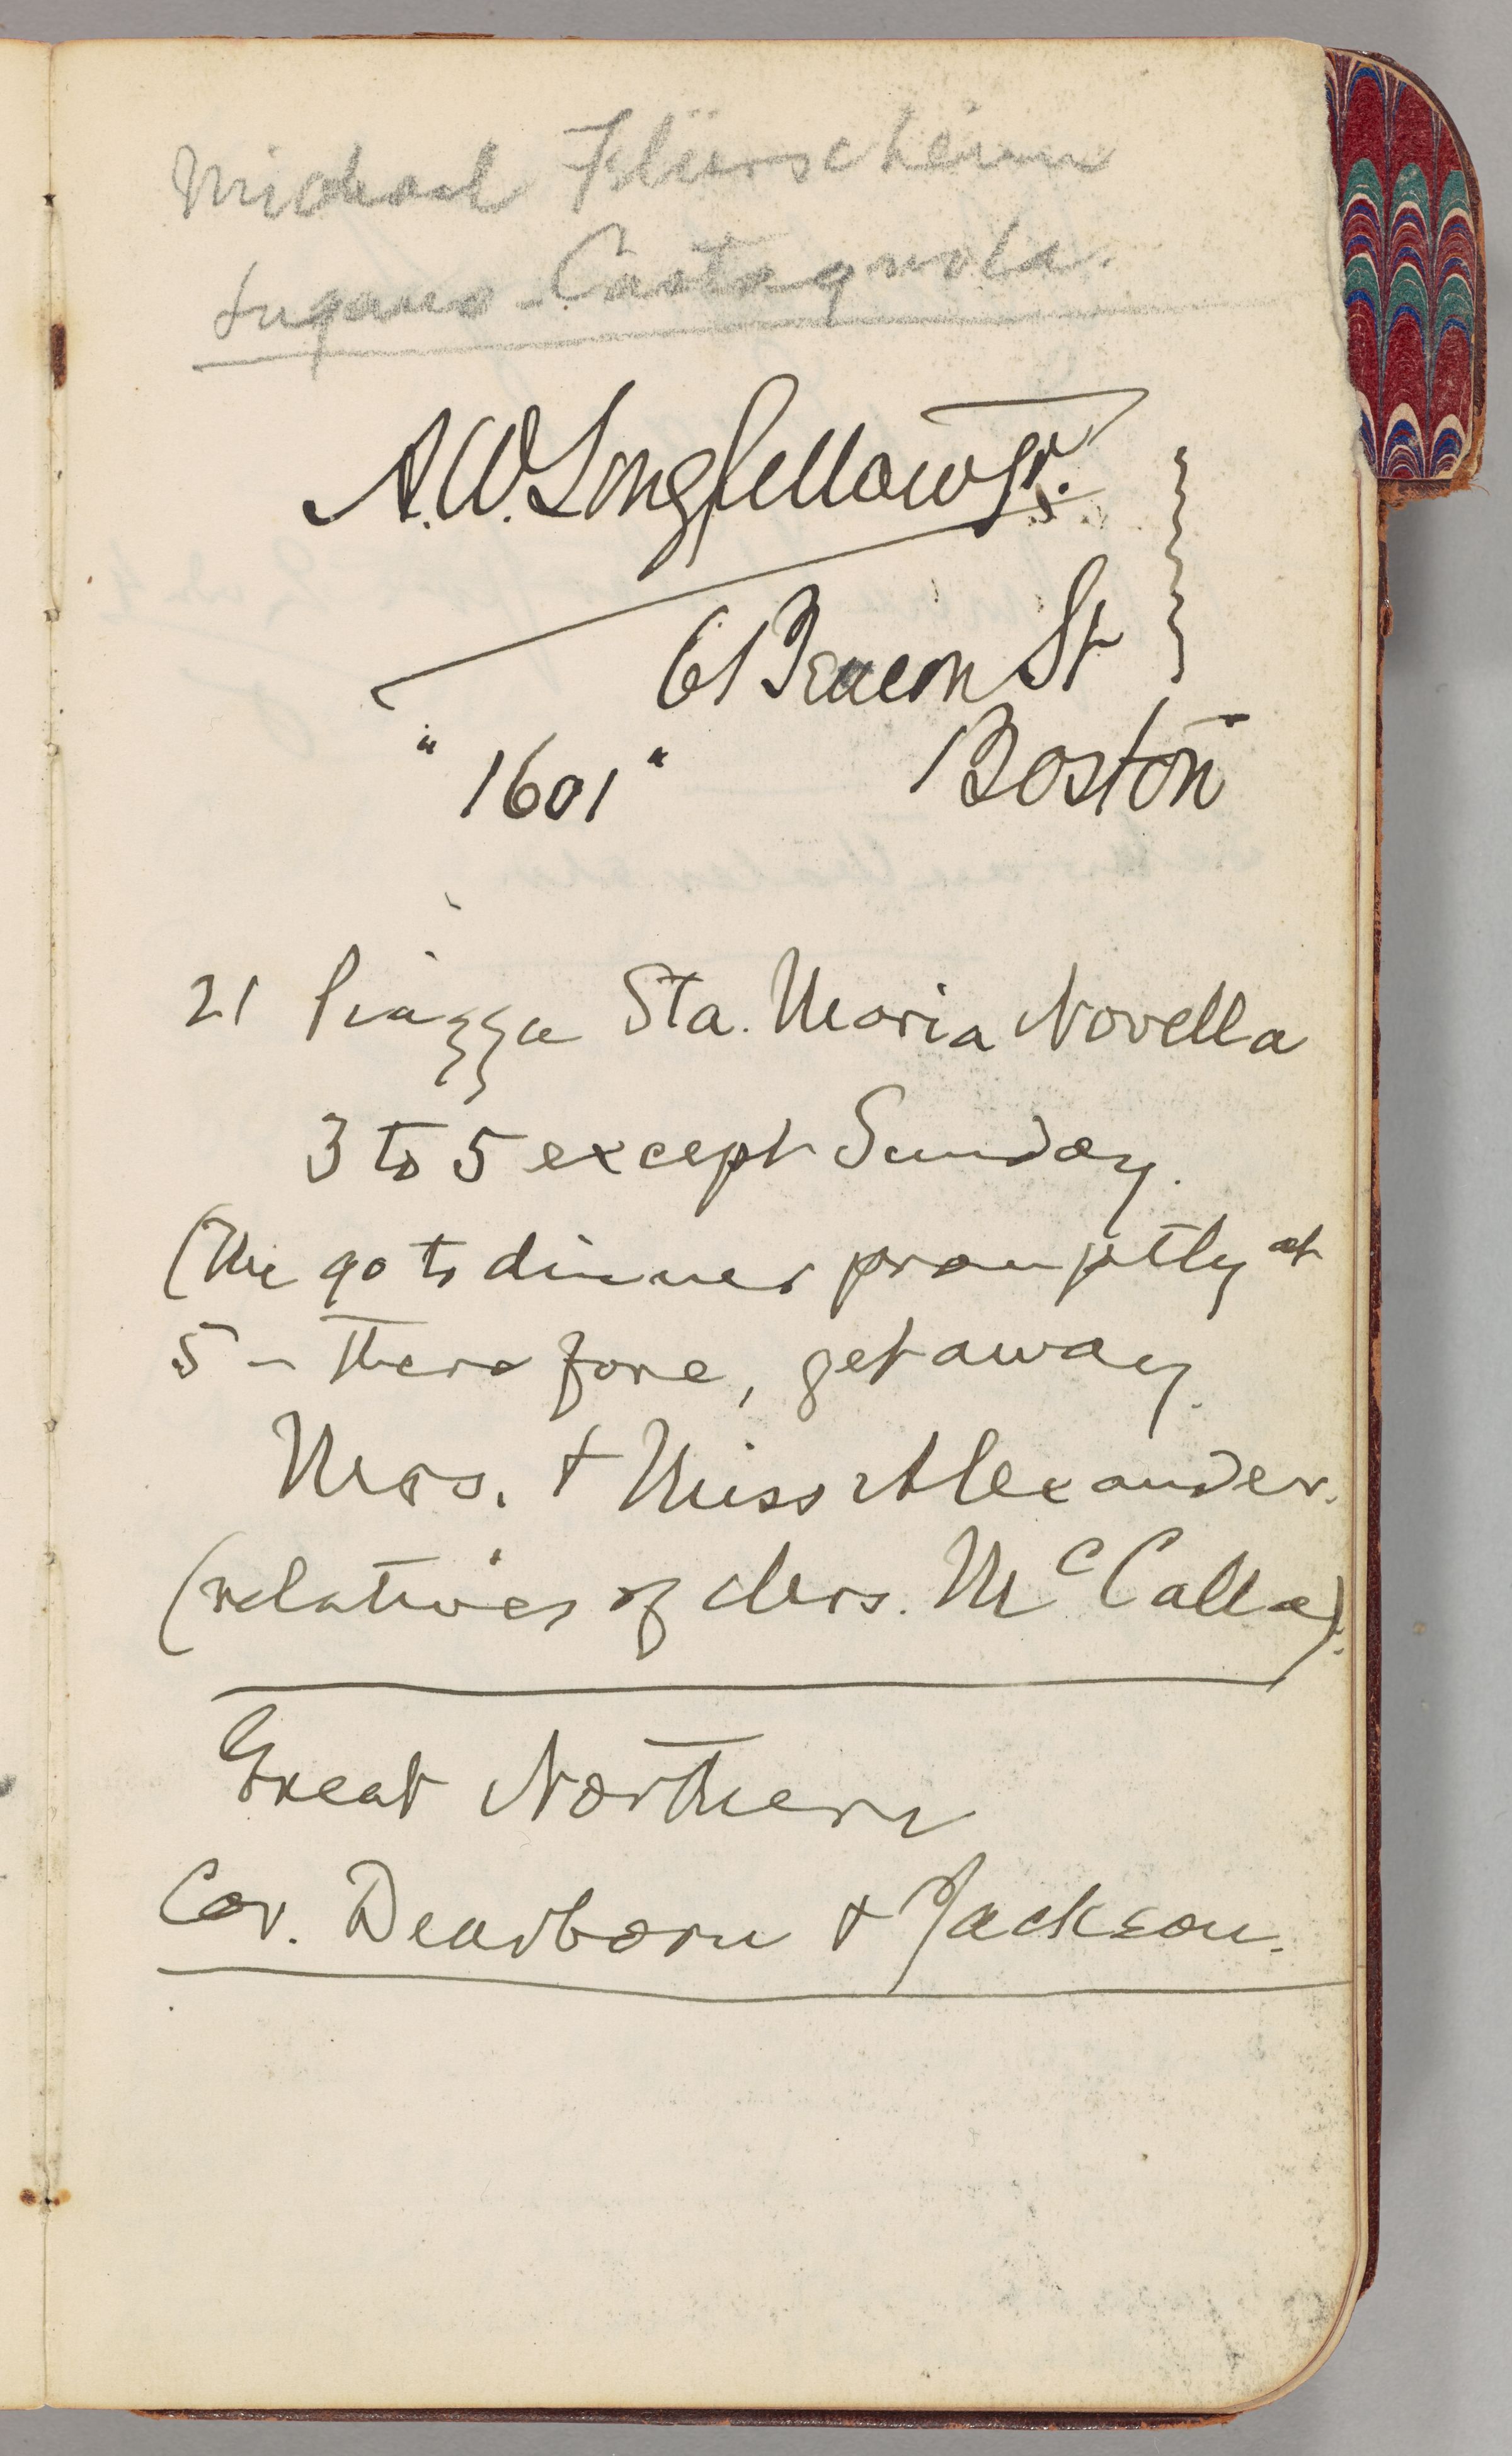 Michael Flürscheim
Lugano-Castagnola.
A.W. Longfellow Jr.
6 Beacon St
Boston
"1601"
21 Piazza Sta. Maria Novella
3 to 5 except Sunday.
(We go to dinner promptly at
5 – therefore, get away.
Mrs. + Miss Alexander.
(relatives of Mrs. McCalla).
Great Northern
Cor. Dearborn + Jackson.